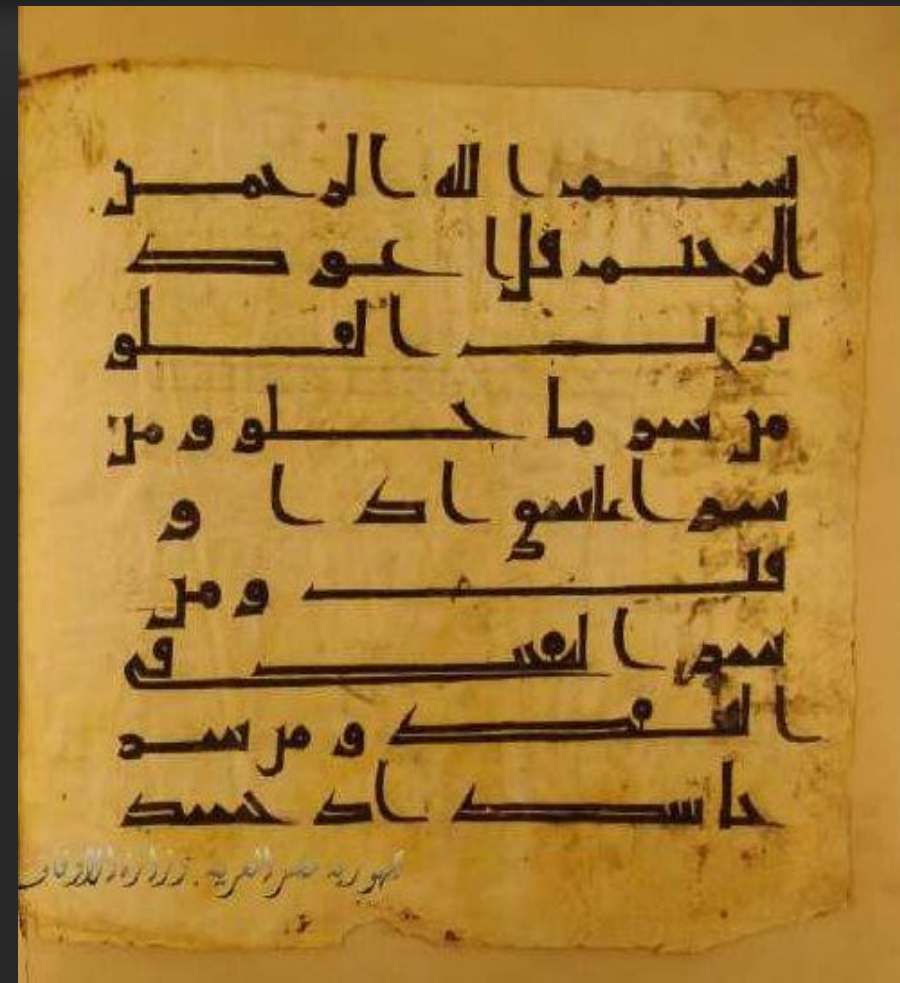 بسم الله الرحمن
الرحيم قل اعوذ
برب الفلق
من شر ما خلق ومن
شر غاسق اذا و
قب ومن
شر النفثت فى
العقد ومن شر
حاسد اذا حسد
جمهورية مصر العربية . وزارة الأوقاف